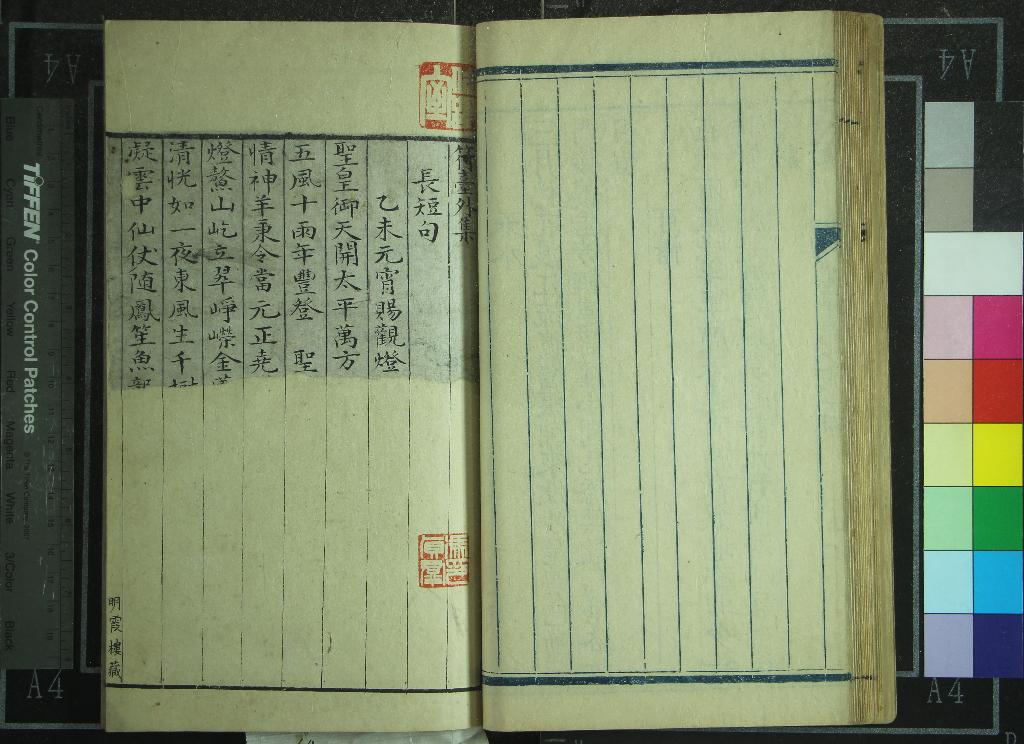 符臺外集
長短句
乙未元宵賜觀燈
聖皇御天開太平萬方
五風十雨年豐登 聖
情神羊秉令當元正堯
燈鰲山屹立翠崢嶸金
清恍如一夜東風生千樹
凝雲中仙仗随鳳笙魚
明霞樓藏
TIFFEN Color Control Patches
Blue Cyan Green Yellow Red Magenta White 3/Color Black
Centimetres
A4
A4
A4
A4